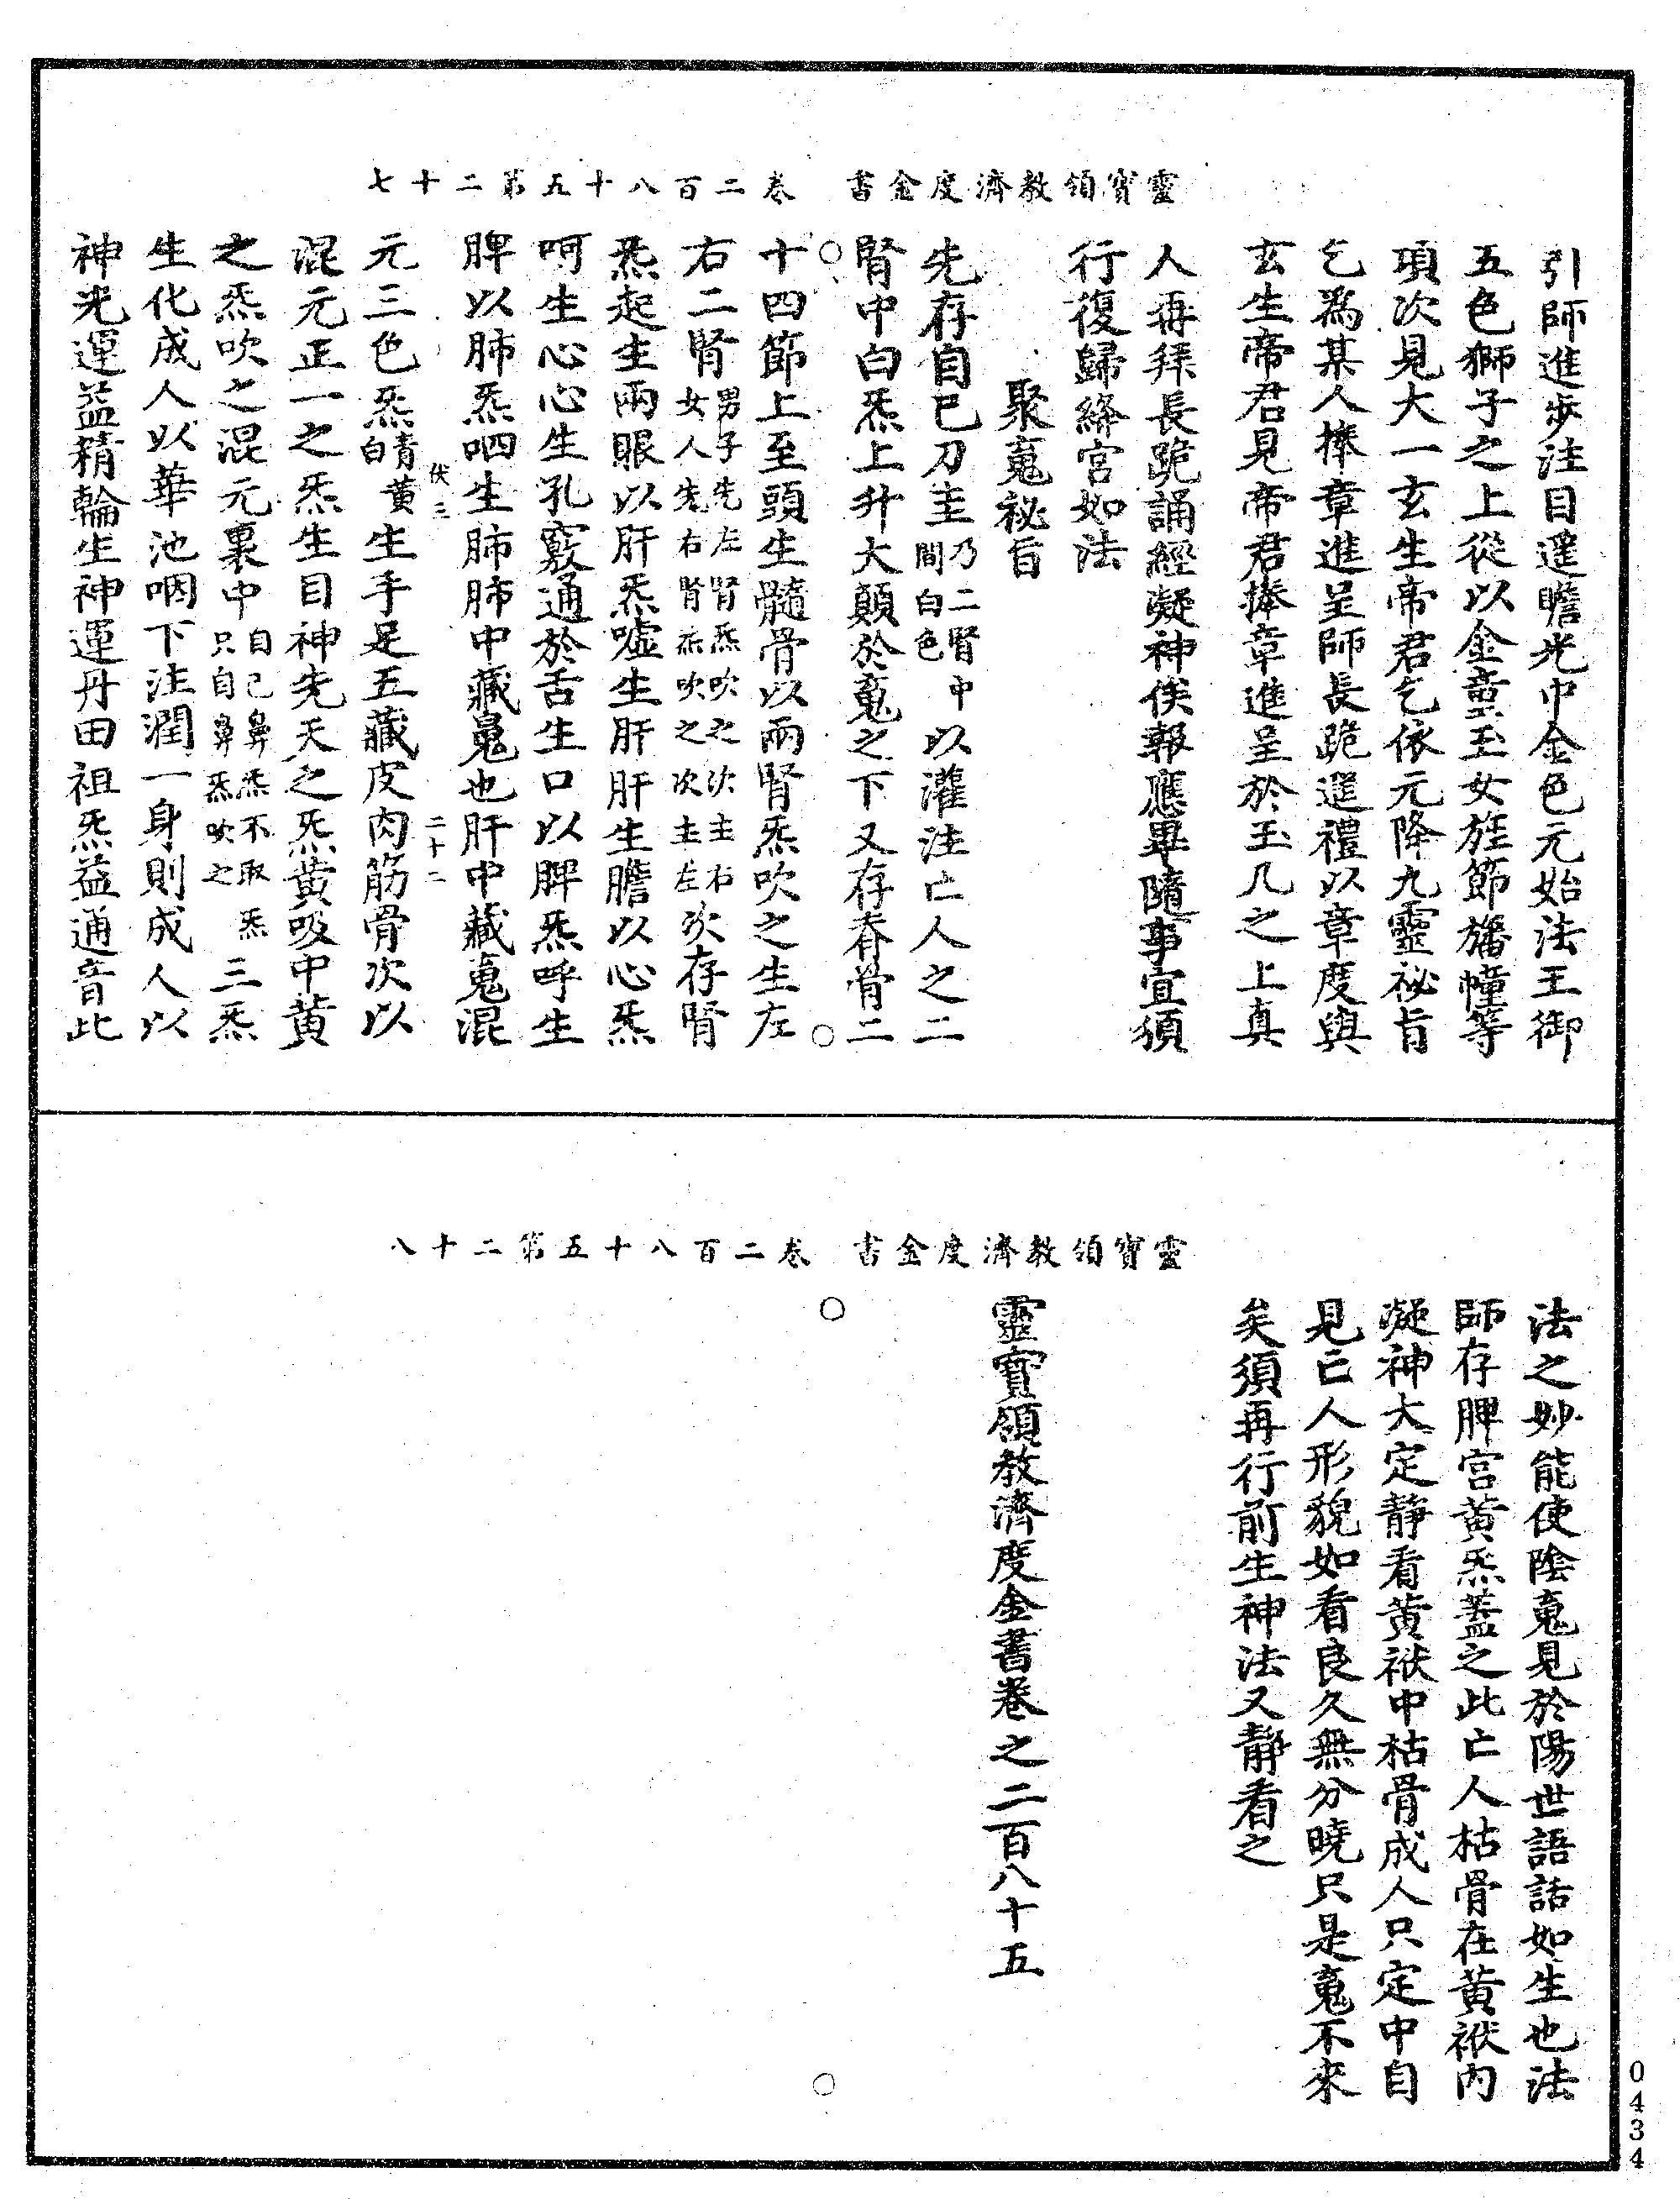 靈寶領教濟度金書　卷二百八十五第二十七
引師進步注目遥瞻光中金色元始法王御
五色獅子之上從以金童玉女旌節旛幢等
項次見大一玄生帝君乞依元降九靈祕旨
乞為某人捧章進呈師長跪遥禮以章度與
玄生帝君見帝君捧章進呈於玉几之上真
人再拜長跪誦經凝神俟報應畢隨事宣須
行復歸絳宮如法
聚䰟祕旨
先存自已刀圭乃二腎中間白色以灌注亡人之二
腎中白炁上升大顛於䰟之下又存脊骨二
十四節上至頭生髓骨以兩腎炁吹之生左
右二腎男子先左腎炁吹之次主右女人先右腎炁吹之次主左次存腎
炁起生兩眼以肝炁噓生肝肝生膽以心炁
呵生心心生孔竅通於舌生口以脾炁呼生
脾以肺炁呬生肺肺中藏魄也肝中藏䰟混
伏三　二十二
元三色炁青黃白生手足五藏皮肉筋骨次以
混元正一之炁生目神先天之炁黃吸中黃
之炁吹之混元裏中自己鼻炁不取炁只自鼻炁吹之三炁
生化成人以華池咽下注潤一身則成人以
神光運益精輪生神運丹田祖炁益通音此
靈寶領教濟度金書　卷二百八十五第二十八
法之妙能使陰䰟見於陽世語話如生也法
師存脾宮黃炁蓋之此亡人枯骨在黃袱内
凝神大定靜看黃袱中枯骨成人只定中自
見亡人形貌如看良久無分曉只是䰟不來
矣須再行前生神法又靜看之
靈寶領教濟度金書卷之二百八十五
0434